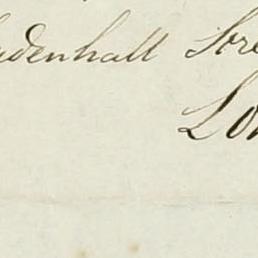 adenhall Stre
Lo